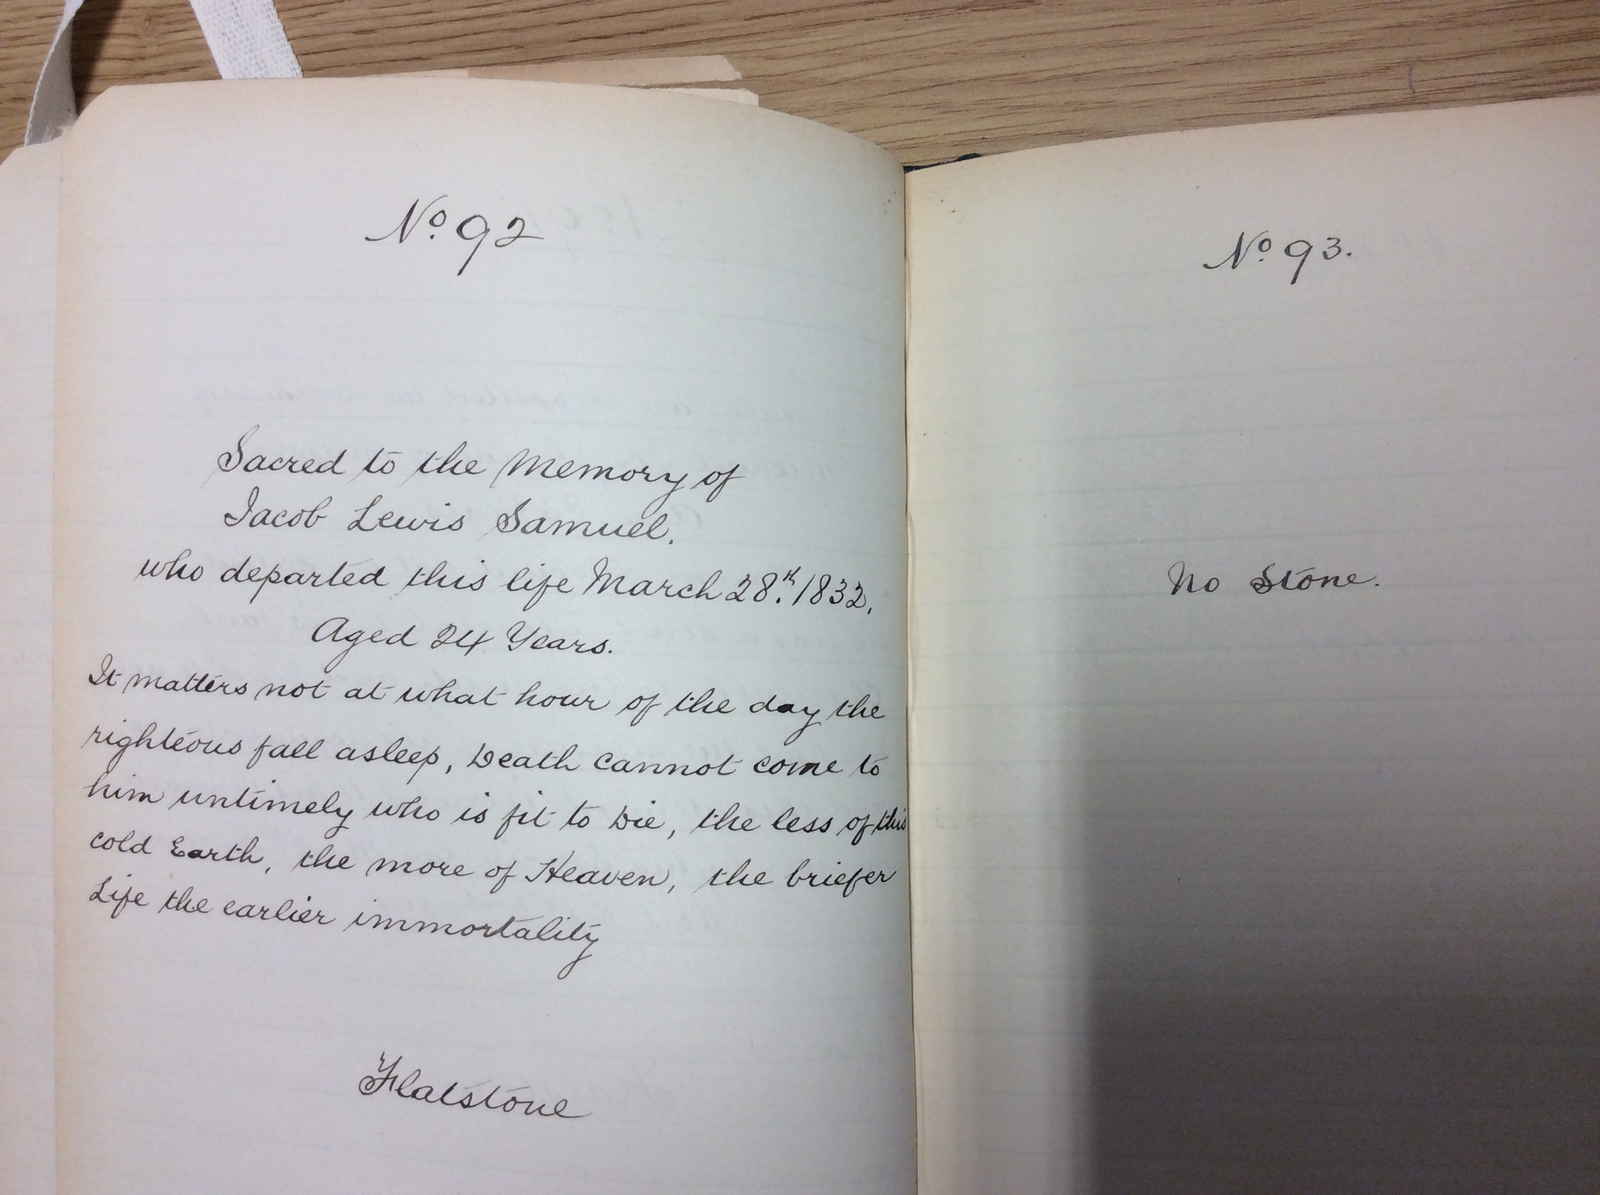 No. 92
Sacred to the Memory of
Jacob Lewis Samuel.
who departed this life March 28th. 1832,
Aged 24 Years.
It matters not at what hour of the day the
righteous fall asleep, Death cannot come to
him untimely who is fit to Die, the less of this
cold Earth, the more of Heaven, the briefer
Life the earlier immortality
Flatstone
No. 93.
No Stone.